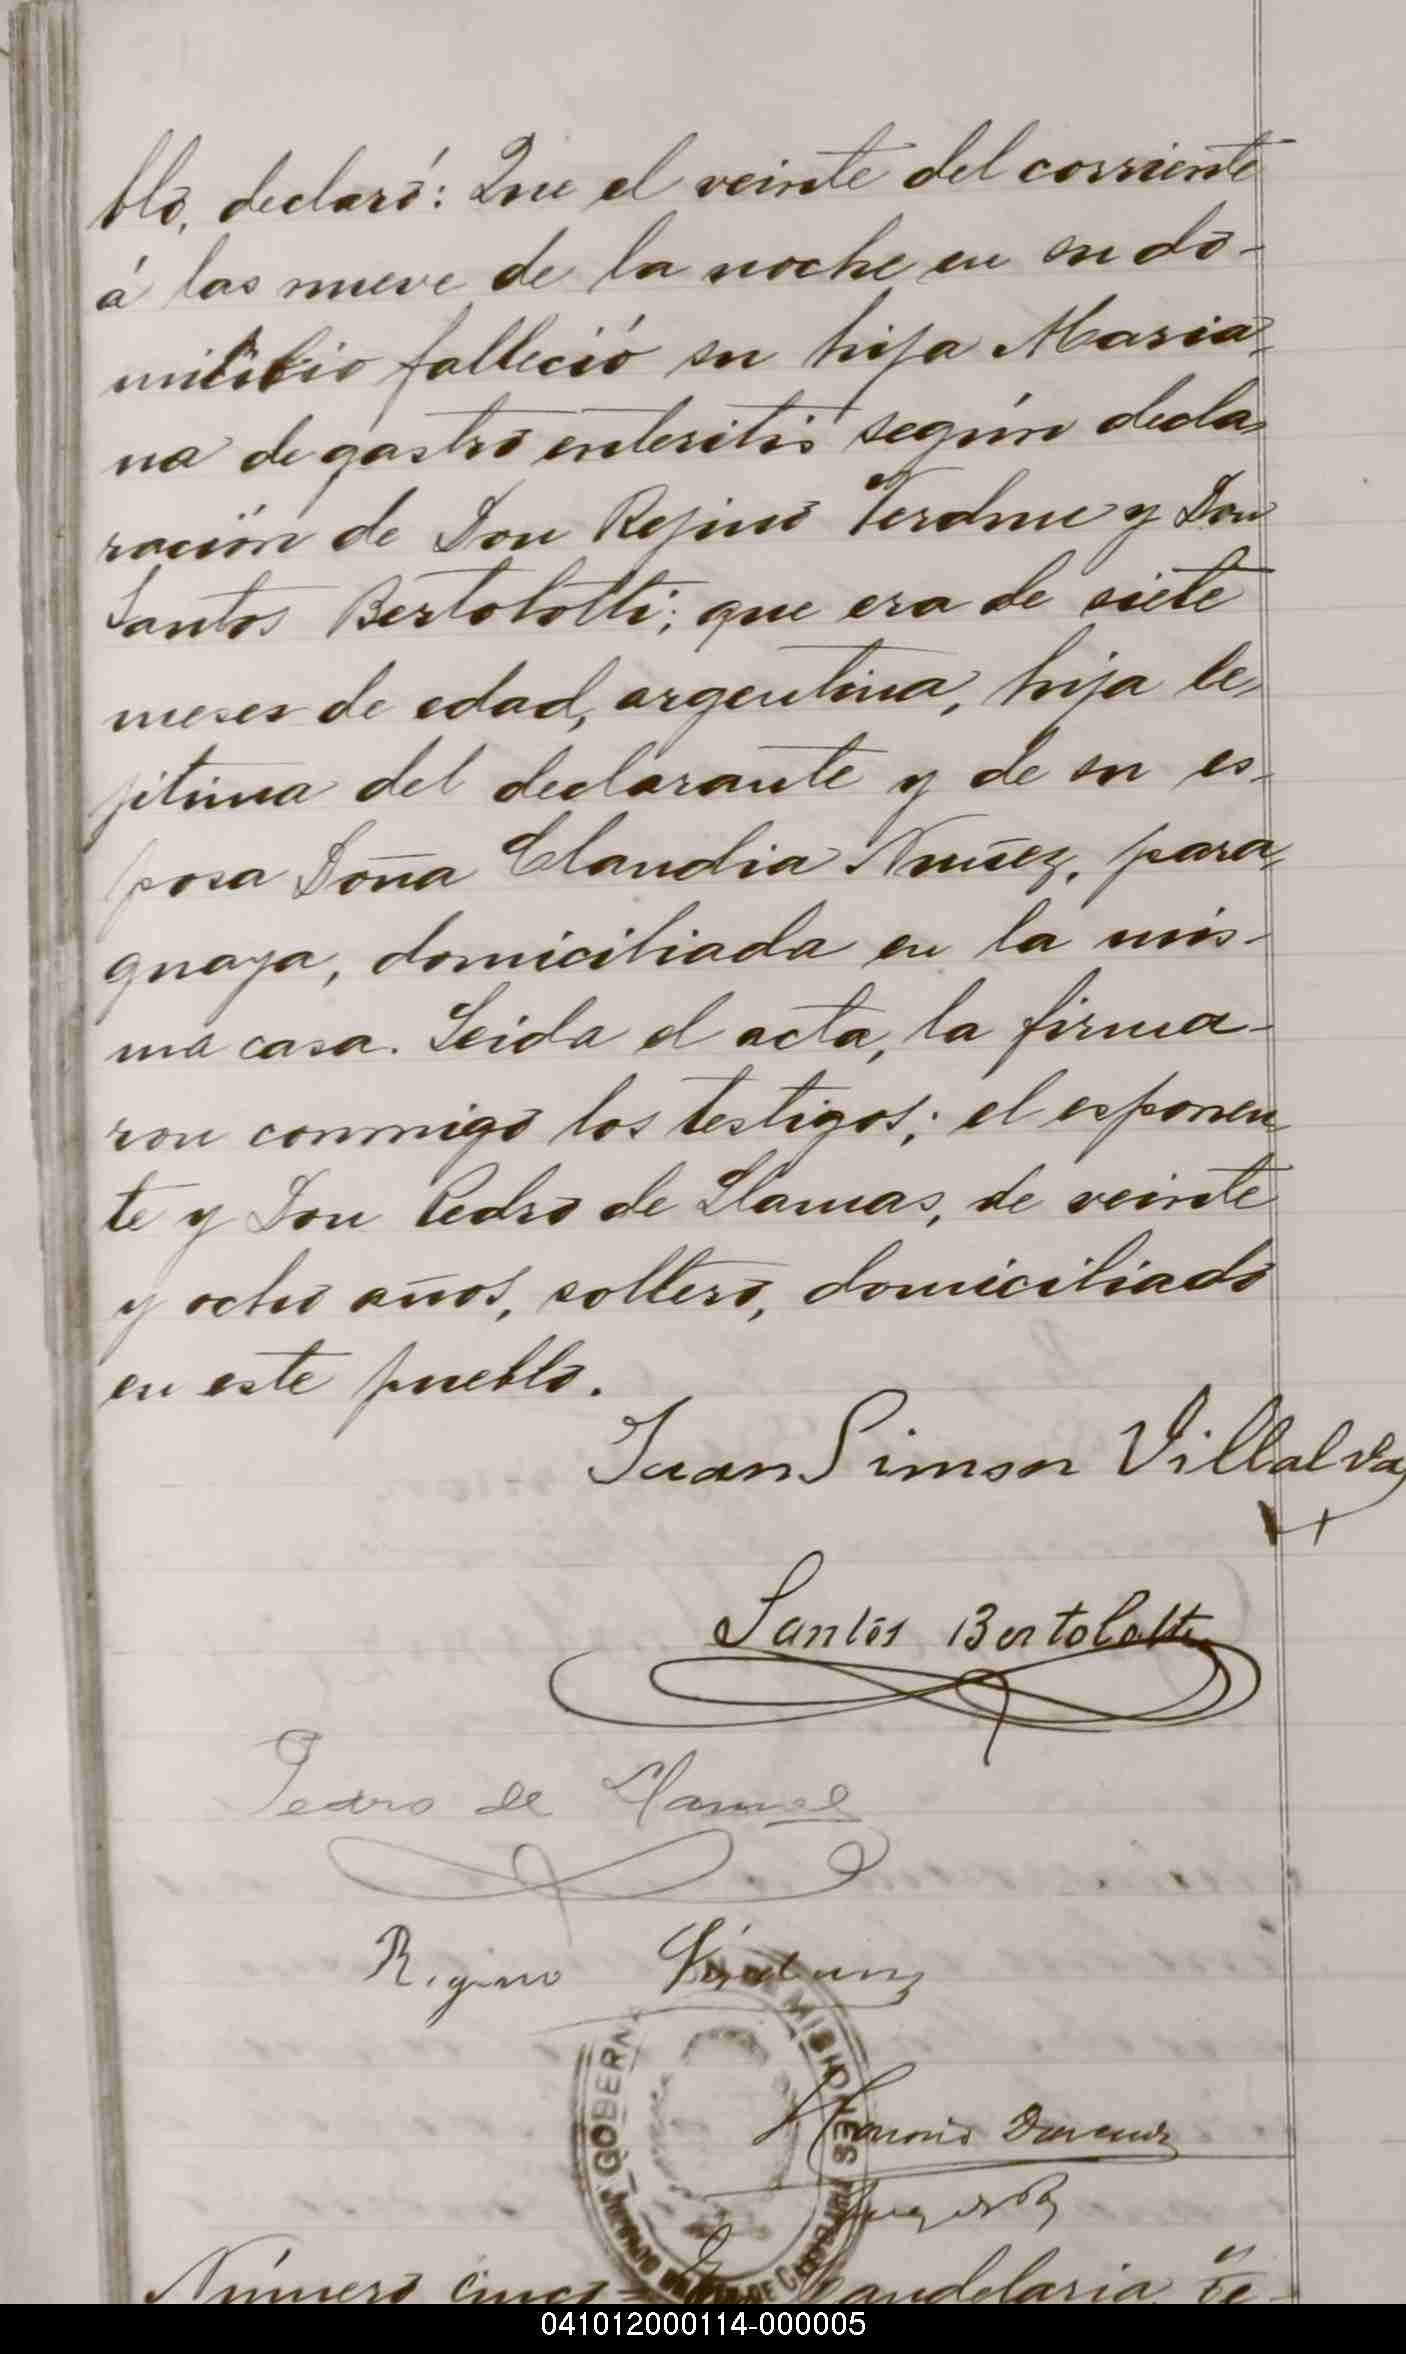 blo, declaró: Que el veinte del corriente
á las nueve de la noche en su do-
micilio falleció su hija Maria-
na de gastro enteritis según decla-
ración de Don Rejino Verdun y Don
Santos Bertolotti; que era de siete
meses de edad, argentina, hija le-
jitima del declarante y de su es-
posa Doña Claudia Nuñez, para-
guaya, domiciliada en la mis-
ma casa. Leida el acta, la firma-
ron conmigo los testigos; el esponen-
te y Don Pedro de Llamas, de veinte
y ocho años, soltero, domiciliado
en este pueblo.
Juan Simon Villalva
Santos Bertolotti
Pedro de Llamas
Rigino Verdun
GOBERN MISIONES
Honorio
Juez de Paz
DE CANDELARIA
Número cinco Candelaria Fe-
041012000114-000005